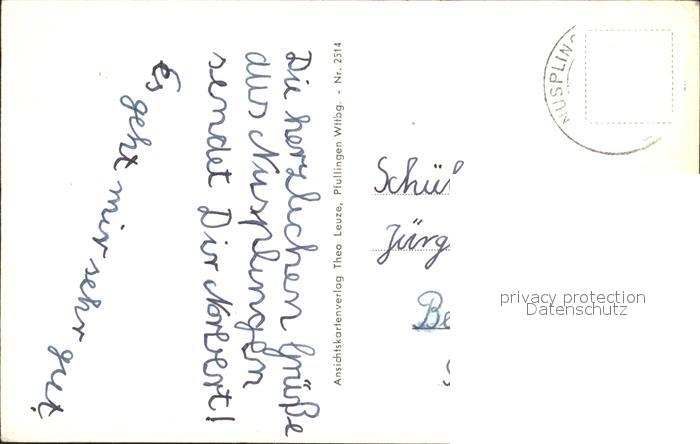 Die herzlichen Grüße
aus Nusplingen
sendet Dir Norbert!
Es geht mir sehr gut!
Ansichtskartenverlag Theo Leuze, Pfullingen Wttbg. - Nr. 2514
NUSPLIN
Jürg
Be
privacy protection
Datenschutz